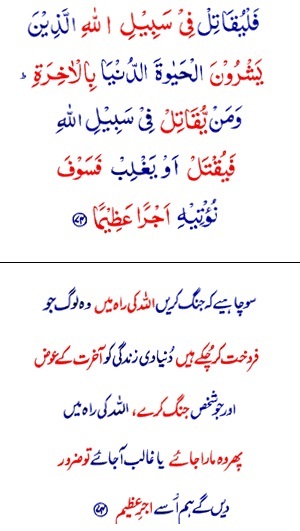 فَلۡيُقَاتِلۡ فِىۡ سَبِيۡلِ اللّٰهِ الَّذِيۡنَ
يَشۡرُوۡنَ الۡحَيٰوةَ الدُّنۡيَا بِالۡاٰخِرَةِ‌ ؕ
وَمَنۡ يُّقَاتِلۡ فِىۡ سَبِيۡلِ اللّٰهِ
فَيُقۡتَلۡ اَوۡ يَغۡلِبۡ فَسَوۡفَ
نُؤۡتِيۡهِ اَجۡرًا عَظِيۡمًا ﴿۷۴﴾
سو چاہیے کہ جنگ کریں اللہ کی راہ میں وہ لوگ جو
فروخت کر چُکے ہیں دُنیاوی زندگی کو آخرت کے عوض
اور جو شخص جنگ کرے، اللہ کی راہ میں
پھر وہ مارا جائے یا غالب آجائے تو ضرور
دیں گے ہم اُسے اجرِ عظیم ﴿۷۴﴾